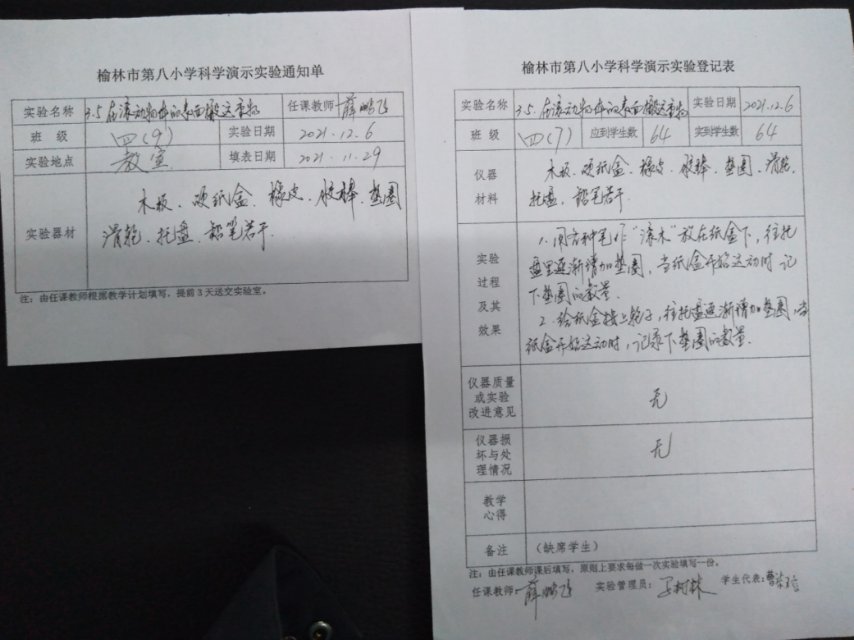 榆林市第八小学科学演示实验通知单
实验名称 3.5 在滚动物体的表面搬运重物 任课教师 薛
班 级 四(9) 实验日期 2021.12.6
实验地点 教室 填表日期 2021.11.29
实验器材
木板、硬纸盒、橡皮、胶棒、垫圈
滑轮、托盘、铅笔若干.
注：由任课教师根据教学计划填写，提前3天送交实验室。
榆林市第八小学科学演示实验登记表
实验名称 3.5. 在滚动物体的表面搬运重物 实验日期 2021.12.6
班 级 四(7) 应到学生数 64 实到学生数 64
仪器
材料
木板、硬纸盒、橡皮、胶棒、垫圈、滑轮、
托盘、铅笔若干.
实验
过程
及其
效果
1. 用各种笔作“滚木”放在纸盒下，往托
盘里逐渐增加垫圈，当纸盒开始运动时记
下垫圈的数量.
2. 给纸盒接上轮子，往托盘逐渐增加垫圈，当
纸盒开始运动时，记录下垫圈的数量.
仪器质量
或实验
改进意见
无
仪器损
坏与处
理情况
无
教学
心得
备注 （缺席学生）
注：由任课教师课后填写，原则上要求每做一次实验填写一份。
任课教师： 薛 实验管理员： 学生代表： 曹